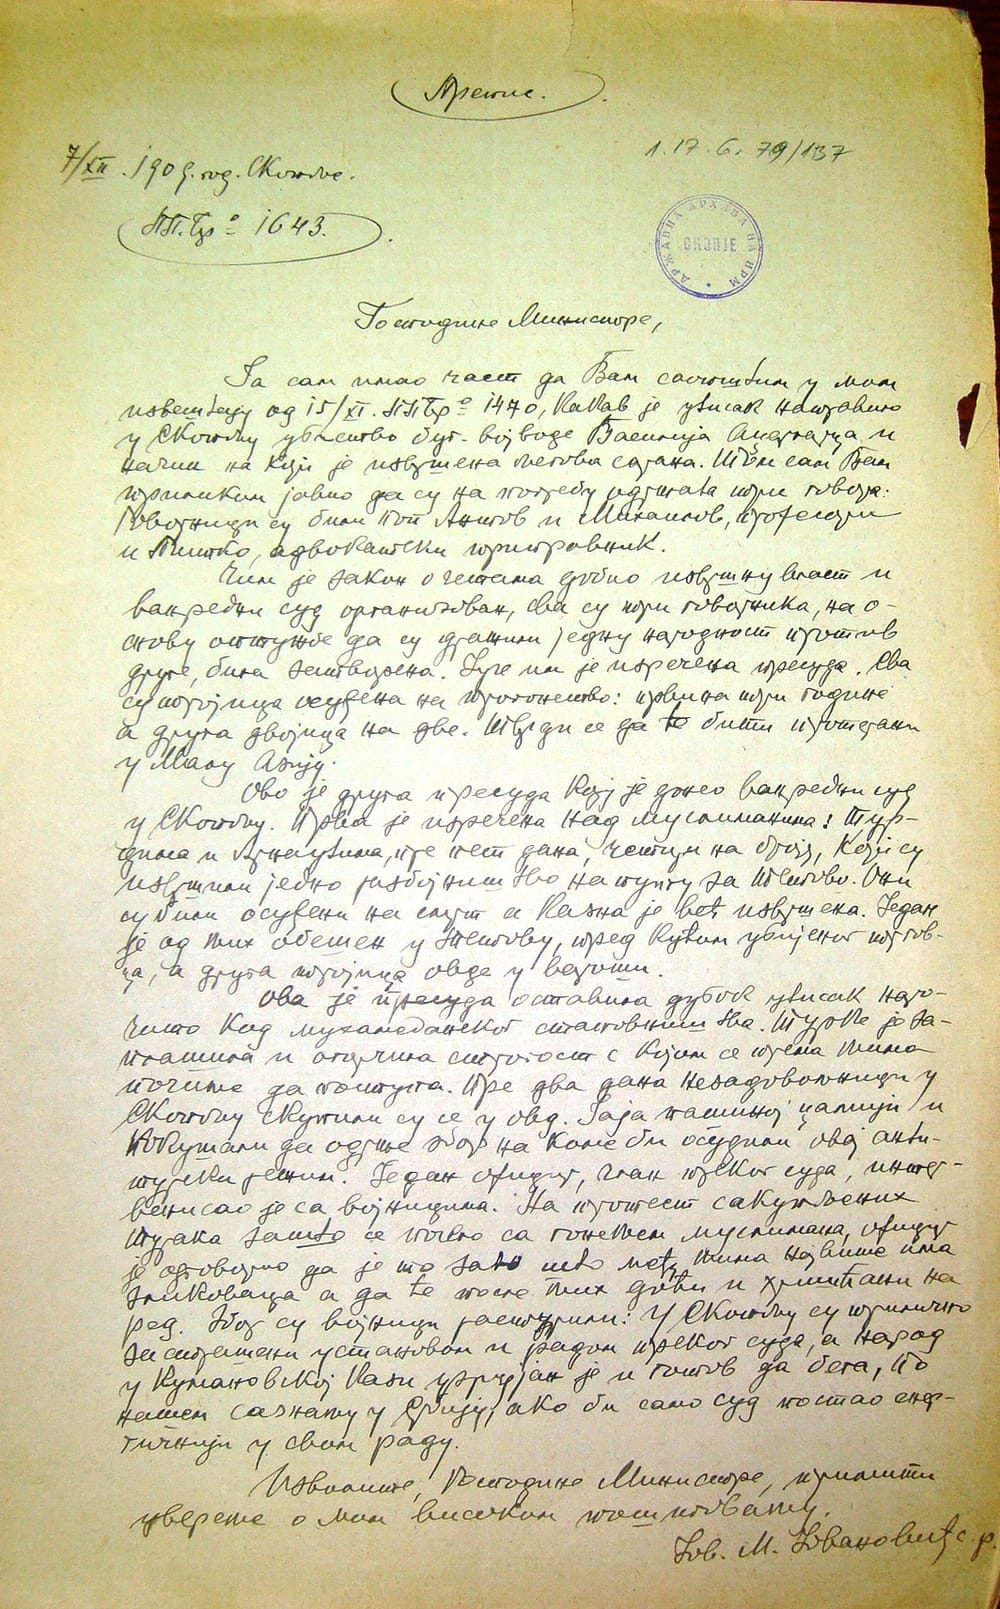 Препис.
1. 17. 6. 79/137
7/XII. 1909. год. Скопље.
ПП.Бр.º 1643.
ДРЖАВНА АРХИВА НА НРМ
СКОПЈЕ
Господине Министре,
Ја сам имао част да Вам саопштим у мом
извештају од 15/XI. ППБрº 1470, какав је утисак направило
у Скопљу убиство буг. војводе Василија Аџаларца и
начин на који је извршена његова сарана. Том сам Вам
приликом јавио да су на погребу одржата три говора.
Говорници су били поп Антов и Михаилов, професори
и Питко, адвокатски приправник.
Чим је закон о четама добио извршну власт и
ванредни суд организован, сва су три говорника, на о-
снову оптужбе да су дражили једну народност против
друге, била затворена. Јуче им је изречена пресуда. Сва
су тројица осуђена на прогонство: први на три године
а друга двојица на две. Тврди се да ће бити протерани
у Малу Азију.
Ово је друга пресуда коју је донео ванредни суд
у Скопљу. Прва је изречена над муслиманима: Тур-
цима и Арнаутима, пре шест дана, четири на броју, који су
извршили једно разбојништво на путу за Тетово. Они
су били осуђени на смрт и казна је већ извршена. Један
је од њих обешен у Тетову, пред кућом убијеног тргов-
ца, а друга тројица овде у вароши.
Ова је пресуда оставила дубок утисак наро-
чито код мухамеданског становништва. Турке је за-
плашила и огорчила строгост с којом се према њима
почиње да поступа. Пре два дана незадовољници у
Скопљу скупили су се у овд. Јаја пашиној џамији и
покушали да одрже збор на коме би осудили овај анти-
турски режим. Један официр, члан преког суда, интер-
венисао је са војницима. На протест сакупљених
Турака зашто се почело са гоњењем муслимана, официр
је одговорио да је то зато што међу њима највише има
зликоваца а да ће после њих доћи и хришћани на
ред. Збор су војници растурили. У Скопљу су прилично
застрашени установом и радом преког суда, а народ
у Кумановској Кази узрујан је и готов да бега, по
нашем сазнању у Србију, ако би само суд постао енер-
гичнији у свом раду.
Изволите, Господине Министре, примити
уверење о мом високом поштовању.
Јов. М. Јовановић с. р.